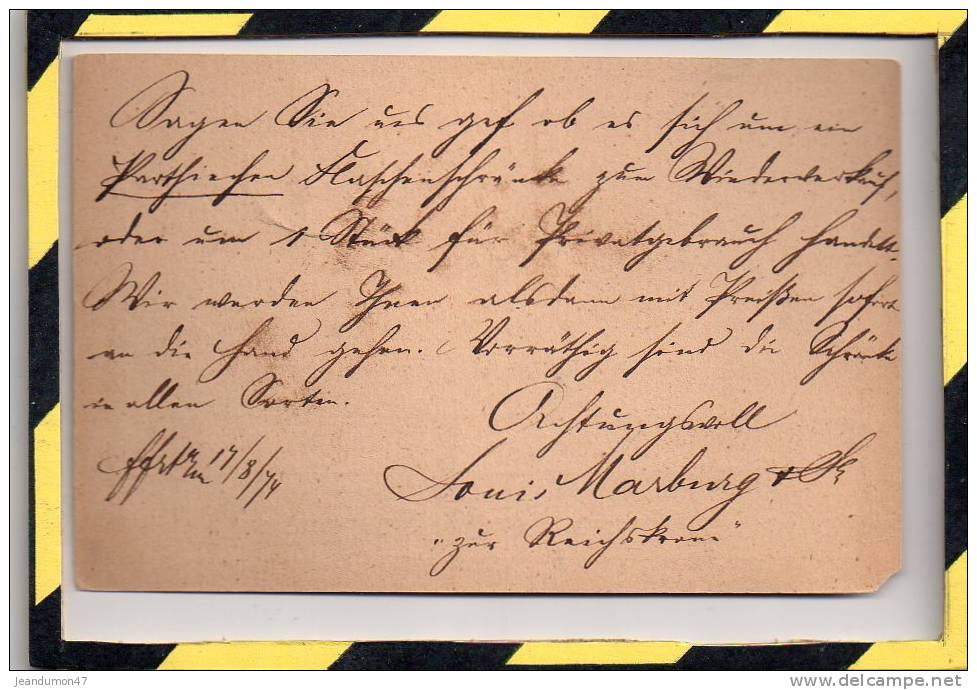 Sagen Sie uns gef ob es sich um ein
Parthiechen Flaschenschränke zum Wiederverkauf,
oder um 1 Stück für Privatgebrauch handelt.
Wir werden Ihnen alsdann mit Preißen sofort
an die Hand gehen. Vorräthig sind die Schränke
in allen Sorten.
Achtungsvoll
Ffrt a/m 17/8/74
Louis Marburg &
"zur Reichskrone"
jeandumon47
delcampe.net